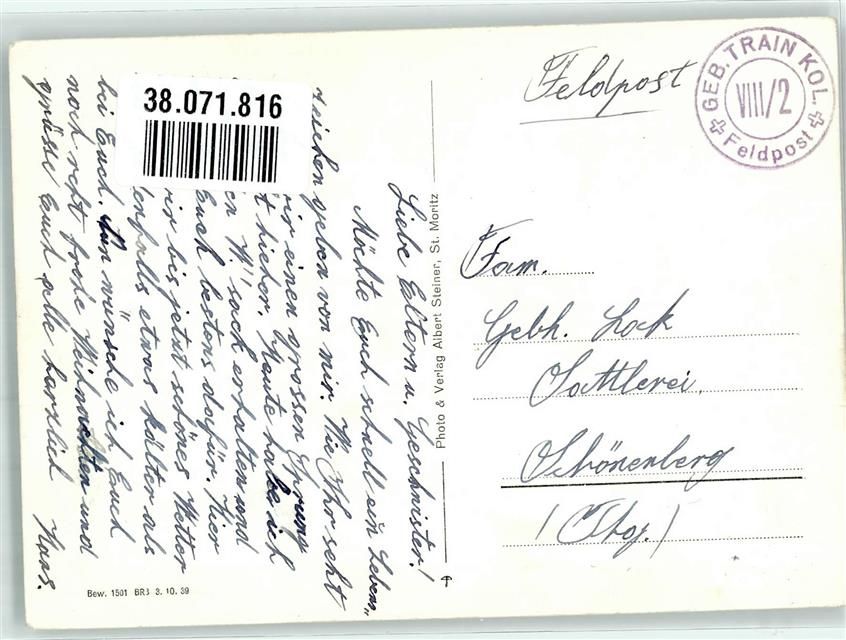 Feldpost
GEB. TRAIN KOL.
VIII/2
Feldpost
38.071.816
Liebe Eltern u. Geschwister!
Möchte Euch schnell ein Lebens„
zeichen geben von mir. Wie Ihr seht
wir einen grossen Sprung
hieher. Heute habe ich
W.'sack erhalten und
Euch bestens dafür. Hier
wir bis jetzt schönes Wetter
etwas kälter als
bei Euch. Nun wünsche ich Euch
noch recht frohe Weihnachten und
grüsse Euch alle herzlich Hans.
Photo & Verlag Albert Steiner, St. Moritz
Fam.
Gebh. Lock
Sattlerei.
Schönenberg
(Thg.)
Bew. 1501 BRB 3. 10. 39